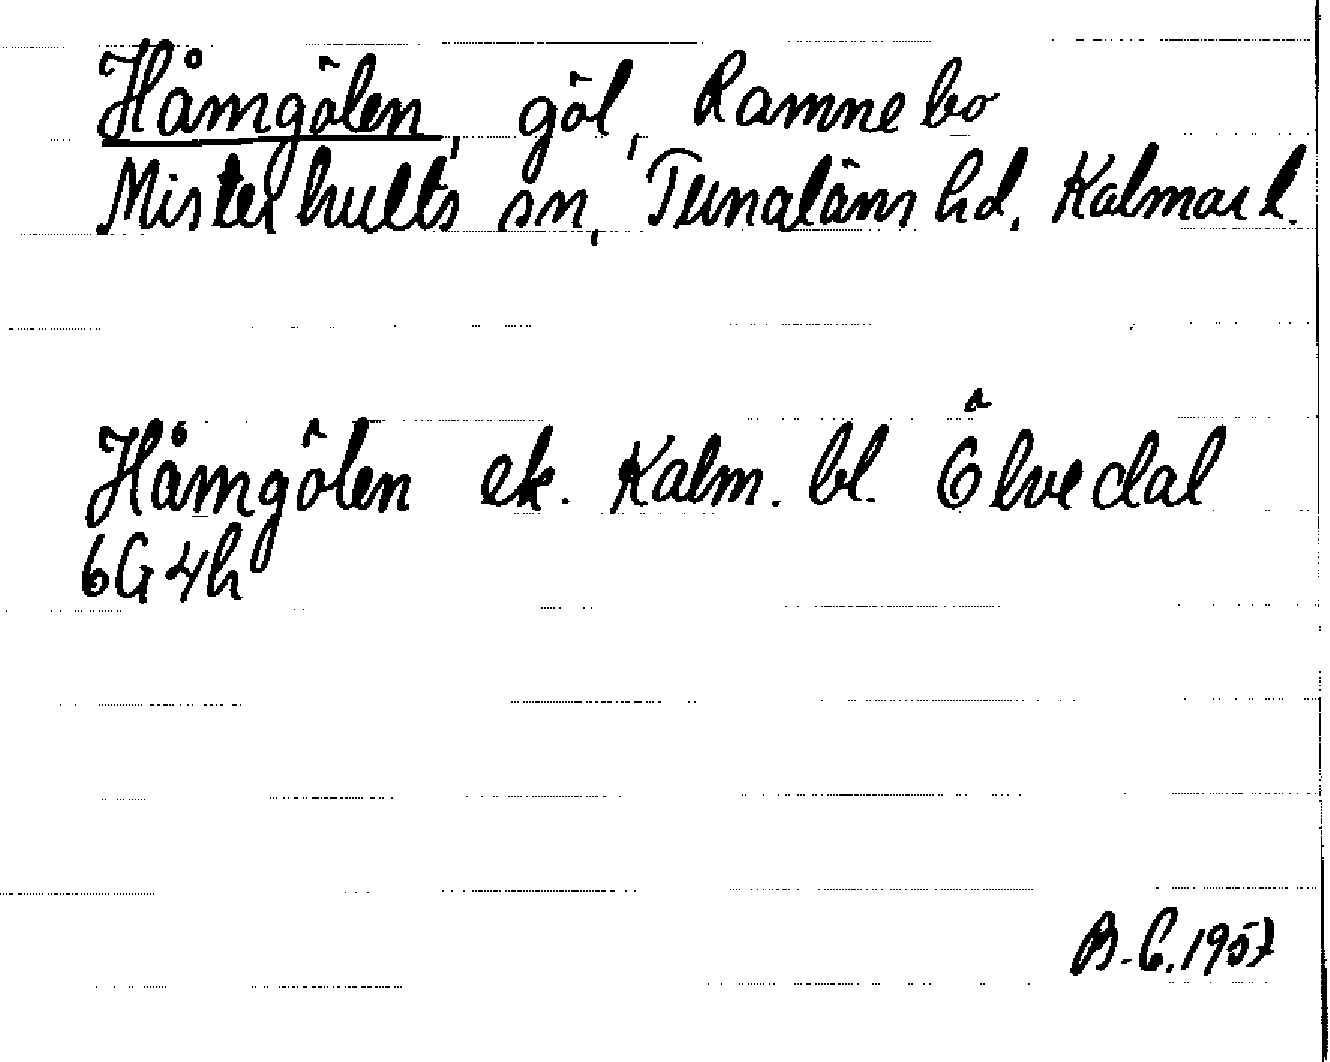 Håmgölen, göl, Ramnebo
Misterhults sn, Tunaläns hd, Kalmar l.
Håmgölen ek. Kalm. bl. Ölvedal
6G4h
B.C. 1957